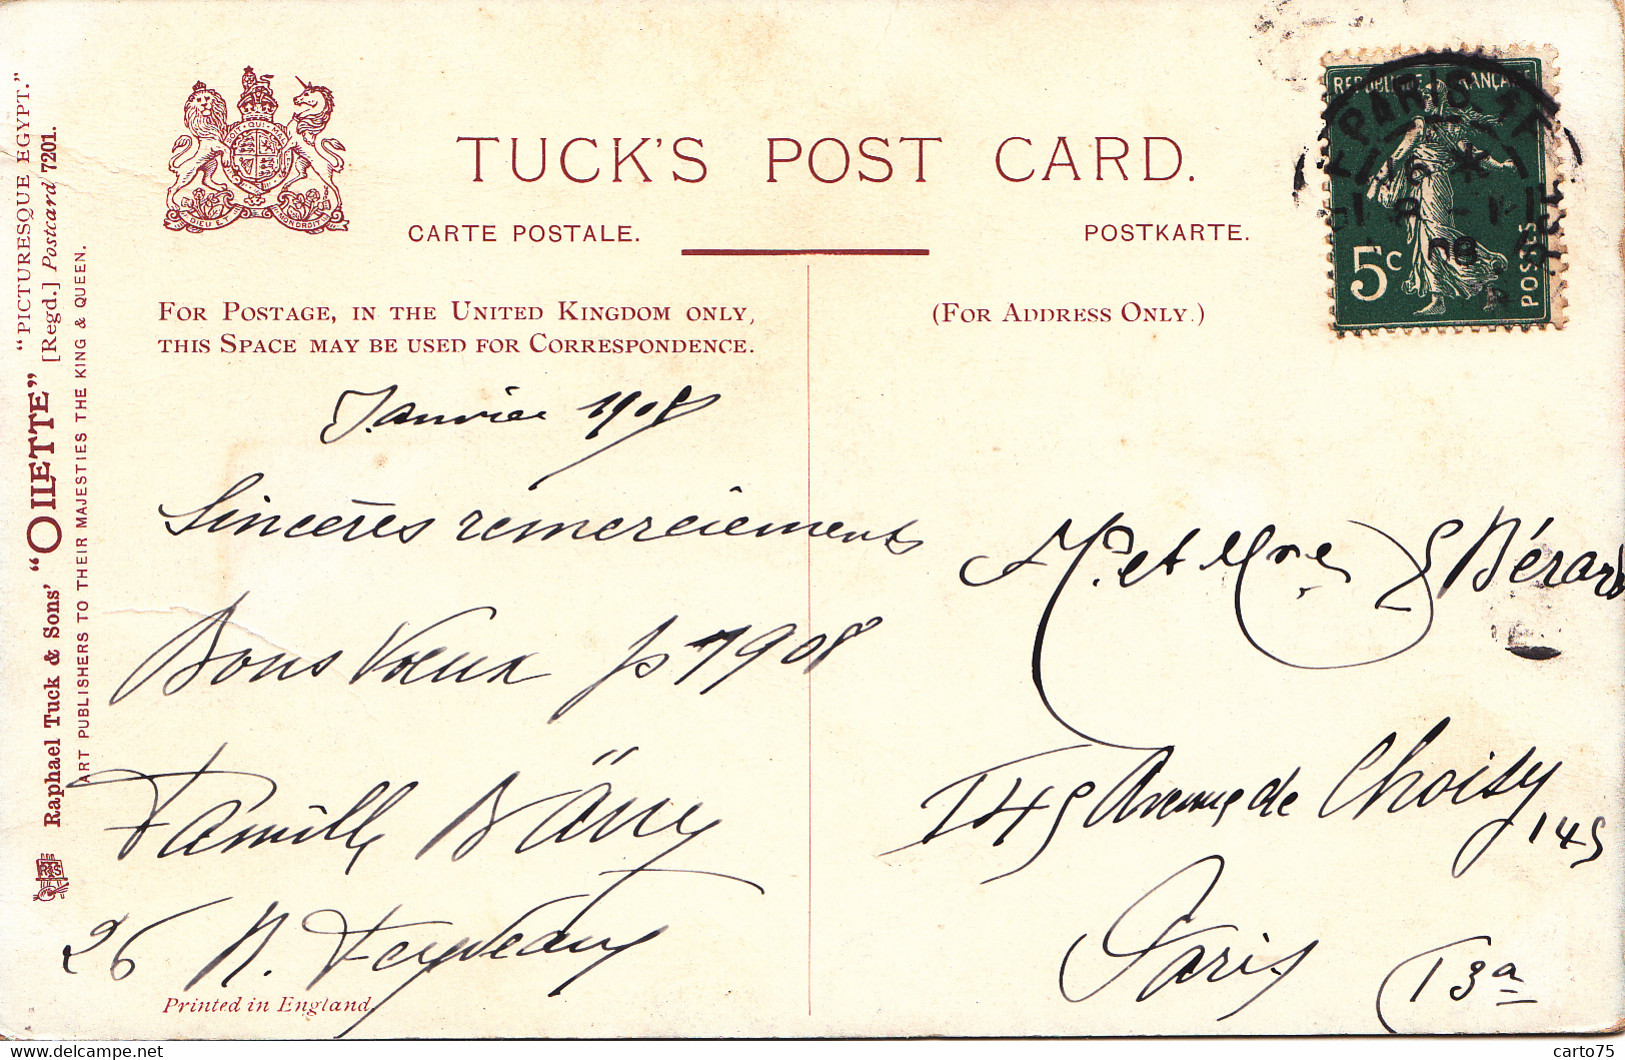 TUCK'S POST CARD.
CARTE POSTALE.
POSTKARTE.
FOR POSTAGE, IN THE UNITED KINGDOM ONLY,
THIS SPACE MAY BE USED FOR CORRESPONDENCE.
(FOR ADDRESS ONLY.)
"PICTURESQUE EGYPT."
Raphael Tuck & Sons' "OILETTE" [Regd.] Postcard 7201.
ART PUBLISHERS TO THEIR MAJESTIES THE KING & QUEEN.
REPUBLIQUE FRANÇAISE
5c
POSTES
PARIS
08
DIEU ET MON DROIT
Janvier 1908
Sincères remerciements
Bons Voeux pr 1908
Famille
26 R.
Printed in England.
M. et Mme Bérard
145 Avenue de Choisy
145
Paris
13e
carto75